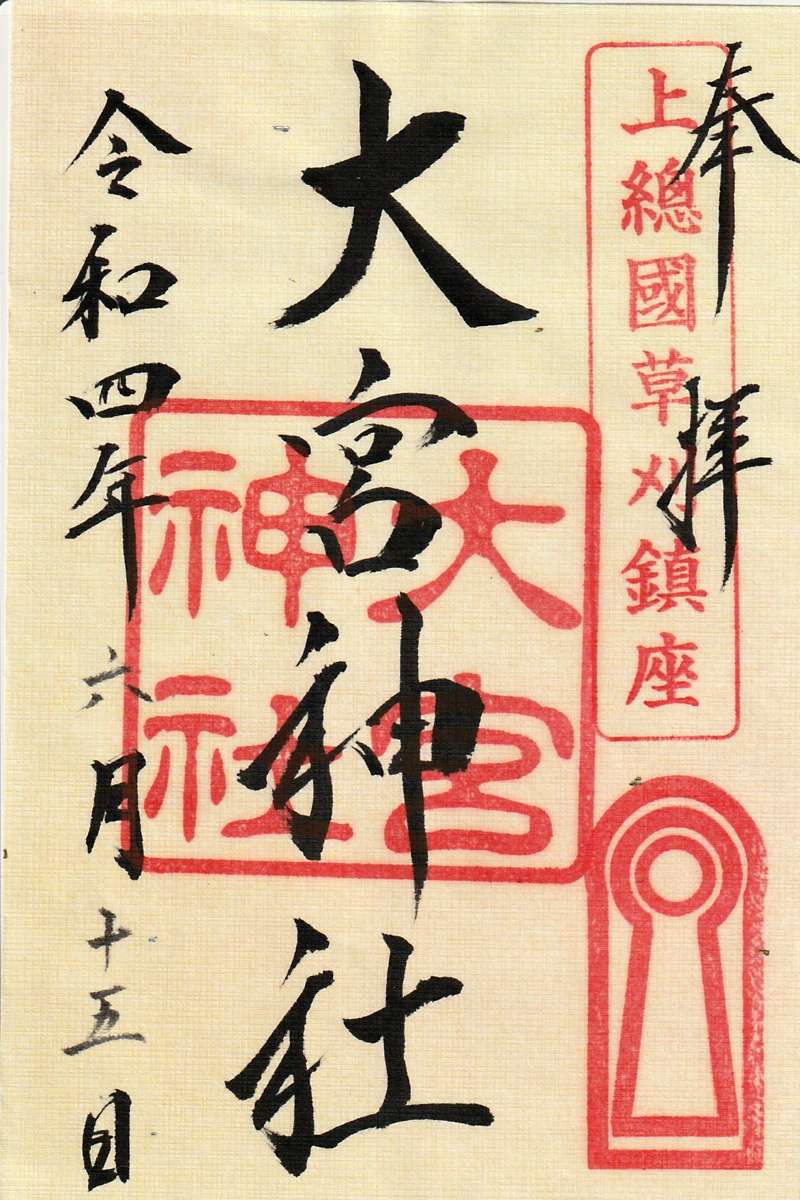 奉拝
上總國草刈鎮座
大宮神社
大宮神社
令和四年六月十五日